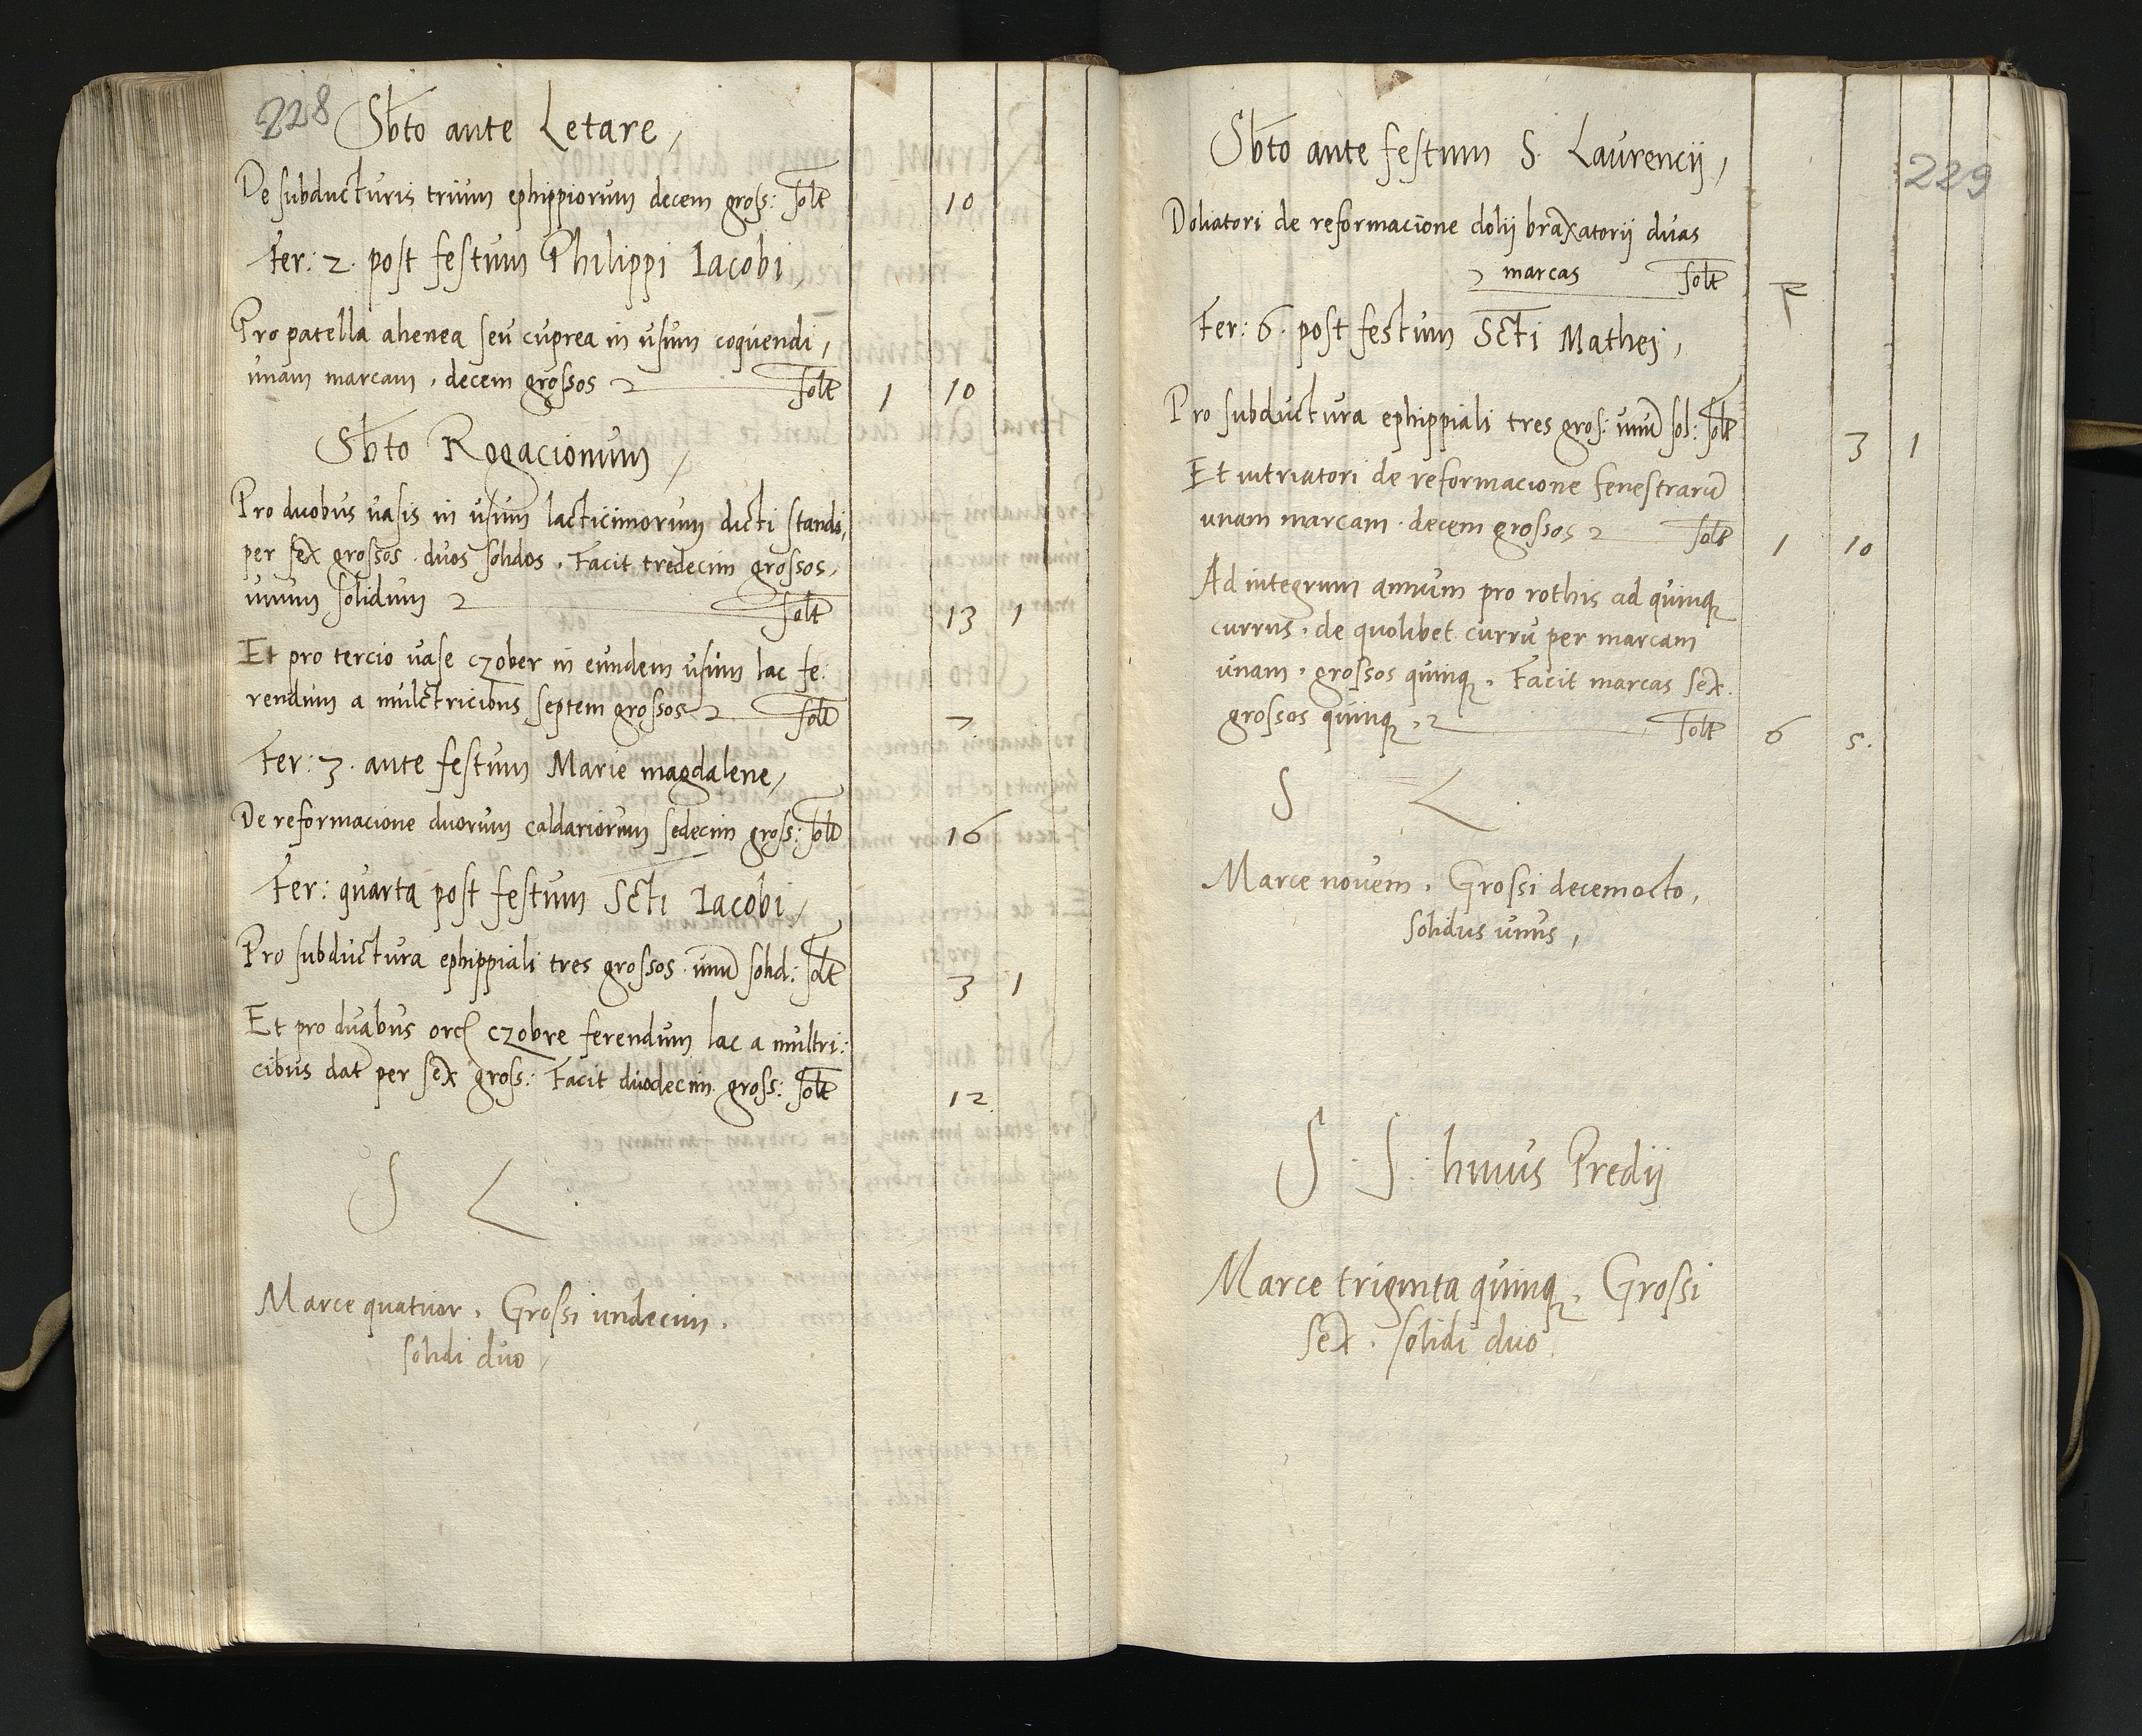 228
Sbto ante Letare,
De subducturis trium ephippiorum decem gross: solt 10
Fer: 2. post festum Philippi Iacobi,
Pro patella ahenea seu cuprea in usum coquendi,
unam marcam, decem grossos solt 1 10
Sbto Rogacionum,
Pro duobus vasis in usum lacticiniorum dicti standi,
per sex grossos. duos solidos. Facit tredecim grossos,
unum solidum solt 13 1
Et pro tercio vase czober in eundem usum lac fe:
rendum a mulctricibus septem grossos solt 7.
Fer: 3. ante festum Marie magdalene,
De reformacione duorum caldariorum sedecim gross: solt 16
Fer: quarta post festum Scti Iacobi,
Pro subductura ephippiali tres grossos. unu solid: solt 3 1
Et pro duabus czobre ferendum lac a multri:
cibus dat per sex gross: Facit duodecim gross: solt 12.
S L.
Marce quatuor. Grossi undecim.
solidi duo,
229
Sbto ante festum S. Laurencij,
Doliatori de reformacione dolij braxatorij duas
marcas solt 2
Fer: 6. post festum Scti Mathei,
Pro subductura ephippiali tres gros: unu sol: solt 3 1
Et vitriatori de reformacione fenestraru
unam marcam. decem grossos solt 1 10
Ad integrum annum pro rothis ad quinq
currus. de quolibet curru per marcam
unam, grossos quinq. Facit marcas sex.
grossos quinq, solt 6 5.
S L.
Marce novem. Grossi decemocto,
solidus unus,
S. S. huius Predij
Marce triginta quinq. Grossi
sex. solidi duo